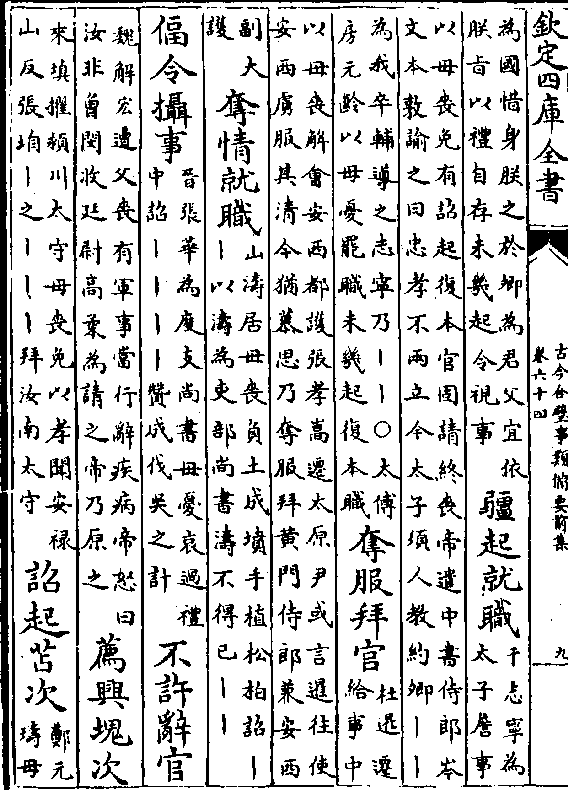 欽定四庫全書
古今合璧事類備要前集
卷六十四
九
為國惜身朕之於卿為君父宜依
朕旨以禮自存未幾起令視事
疆起就職
于志寧為
太子詹事
以母喪免有詔起復本官固請終喪帝遣中書侍郎岑
文本敦諭之曰忠孝不兩立今太子須人教約卿丨丨
為我卒輔導之志寧乃丨丨○太傅
房元齡以母憂罷職未幾起復本職
奪服拜官
杜暹遷
給事中
以母喪解會安西都護張孝嵩遷太原尹或言暹往使
安西虜服其清今猶慕思乃奪服拜黃門侍郎兼安西
副大
護
奪情就職
山濤居母喪負土成墳手植松柏詔丨
丨以濤為吏部尚書濤不得已丨丨
偪令攝事
晉張華為度支尚書母憂哀過禮
中詔丨丨丨丨贊成伐吳之計
不許辭官
魏解宏遭父喪有軍事當行辭疾病帝怒曰
汝非曾閔收廷尉高柔為請之帝乃原之
薦興塊次
來填擢潁川太守母喪免以孝聞安祿
山反張垍丨之丨丨丨拜汝南太守
詔起苫次
鄭元
璹母